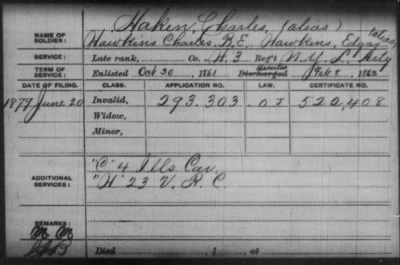 Haken, Charles, (alias)
NAME OF SOLDIER: Hawkins Charles, A. E. Hawkins, Edgar (alias)
SERVICE: Late rank, Co. H. 3 Reg't N.Y. L. Arty
TERM OF SERVICE: Enlisted Oct 30, 1861 Discharged Feb 8, 1862
DATE OF FILING. CLASS. APPLICATION NO. CERTIFICATE NO.
1879 June 20 Invalid, 293.303 522,408
Widow,
Minor,
ADDITIONAL SERVICES: "C" 4 Ills Cav
"H" 23 V. R. C.
REMARKS:
Died , 1 , at